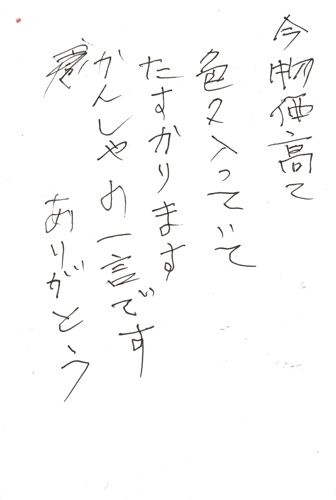 今物価高て
色々入っていて
たすかります
かんしゃの一言です
ありがとう